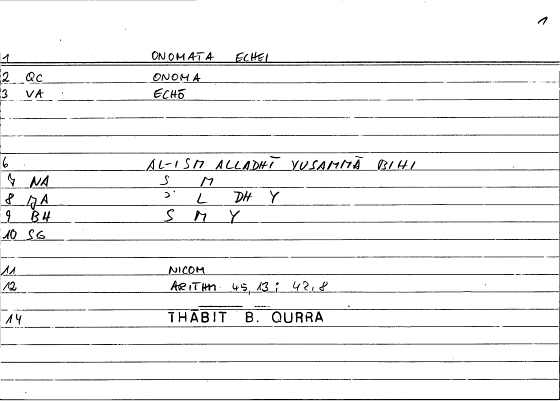 1
1 ONOMATA ECHEI
2 QC ONOMA
3 VA ECHŌ
6 AL-ISM ALLADHĪ YUSAMMĀ BIHI
7 NA S M
8 MA ʾ L DH Y
9 BH S M Y
10 SG
11 NICOM
12 ARITHM 45,13; 42,8
14 THĀBIT B. QURRA